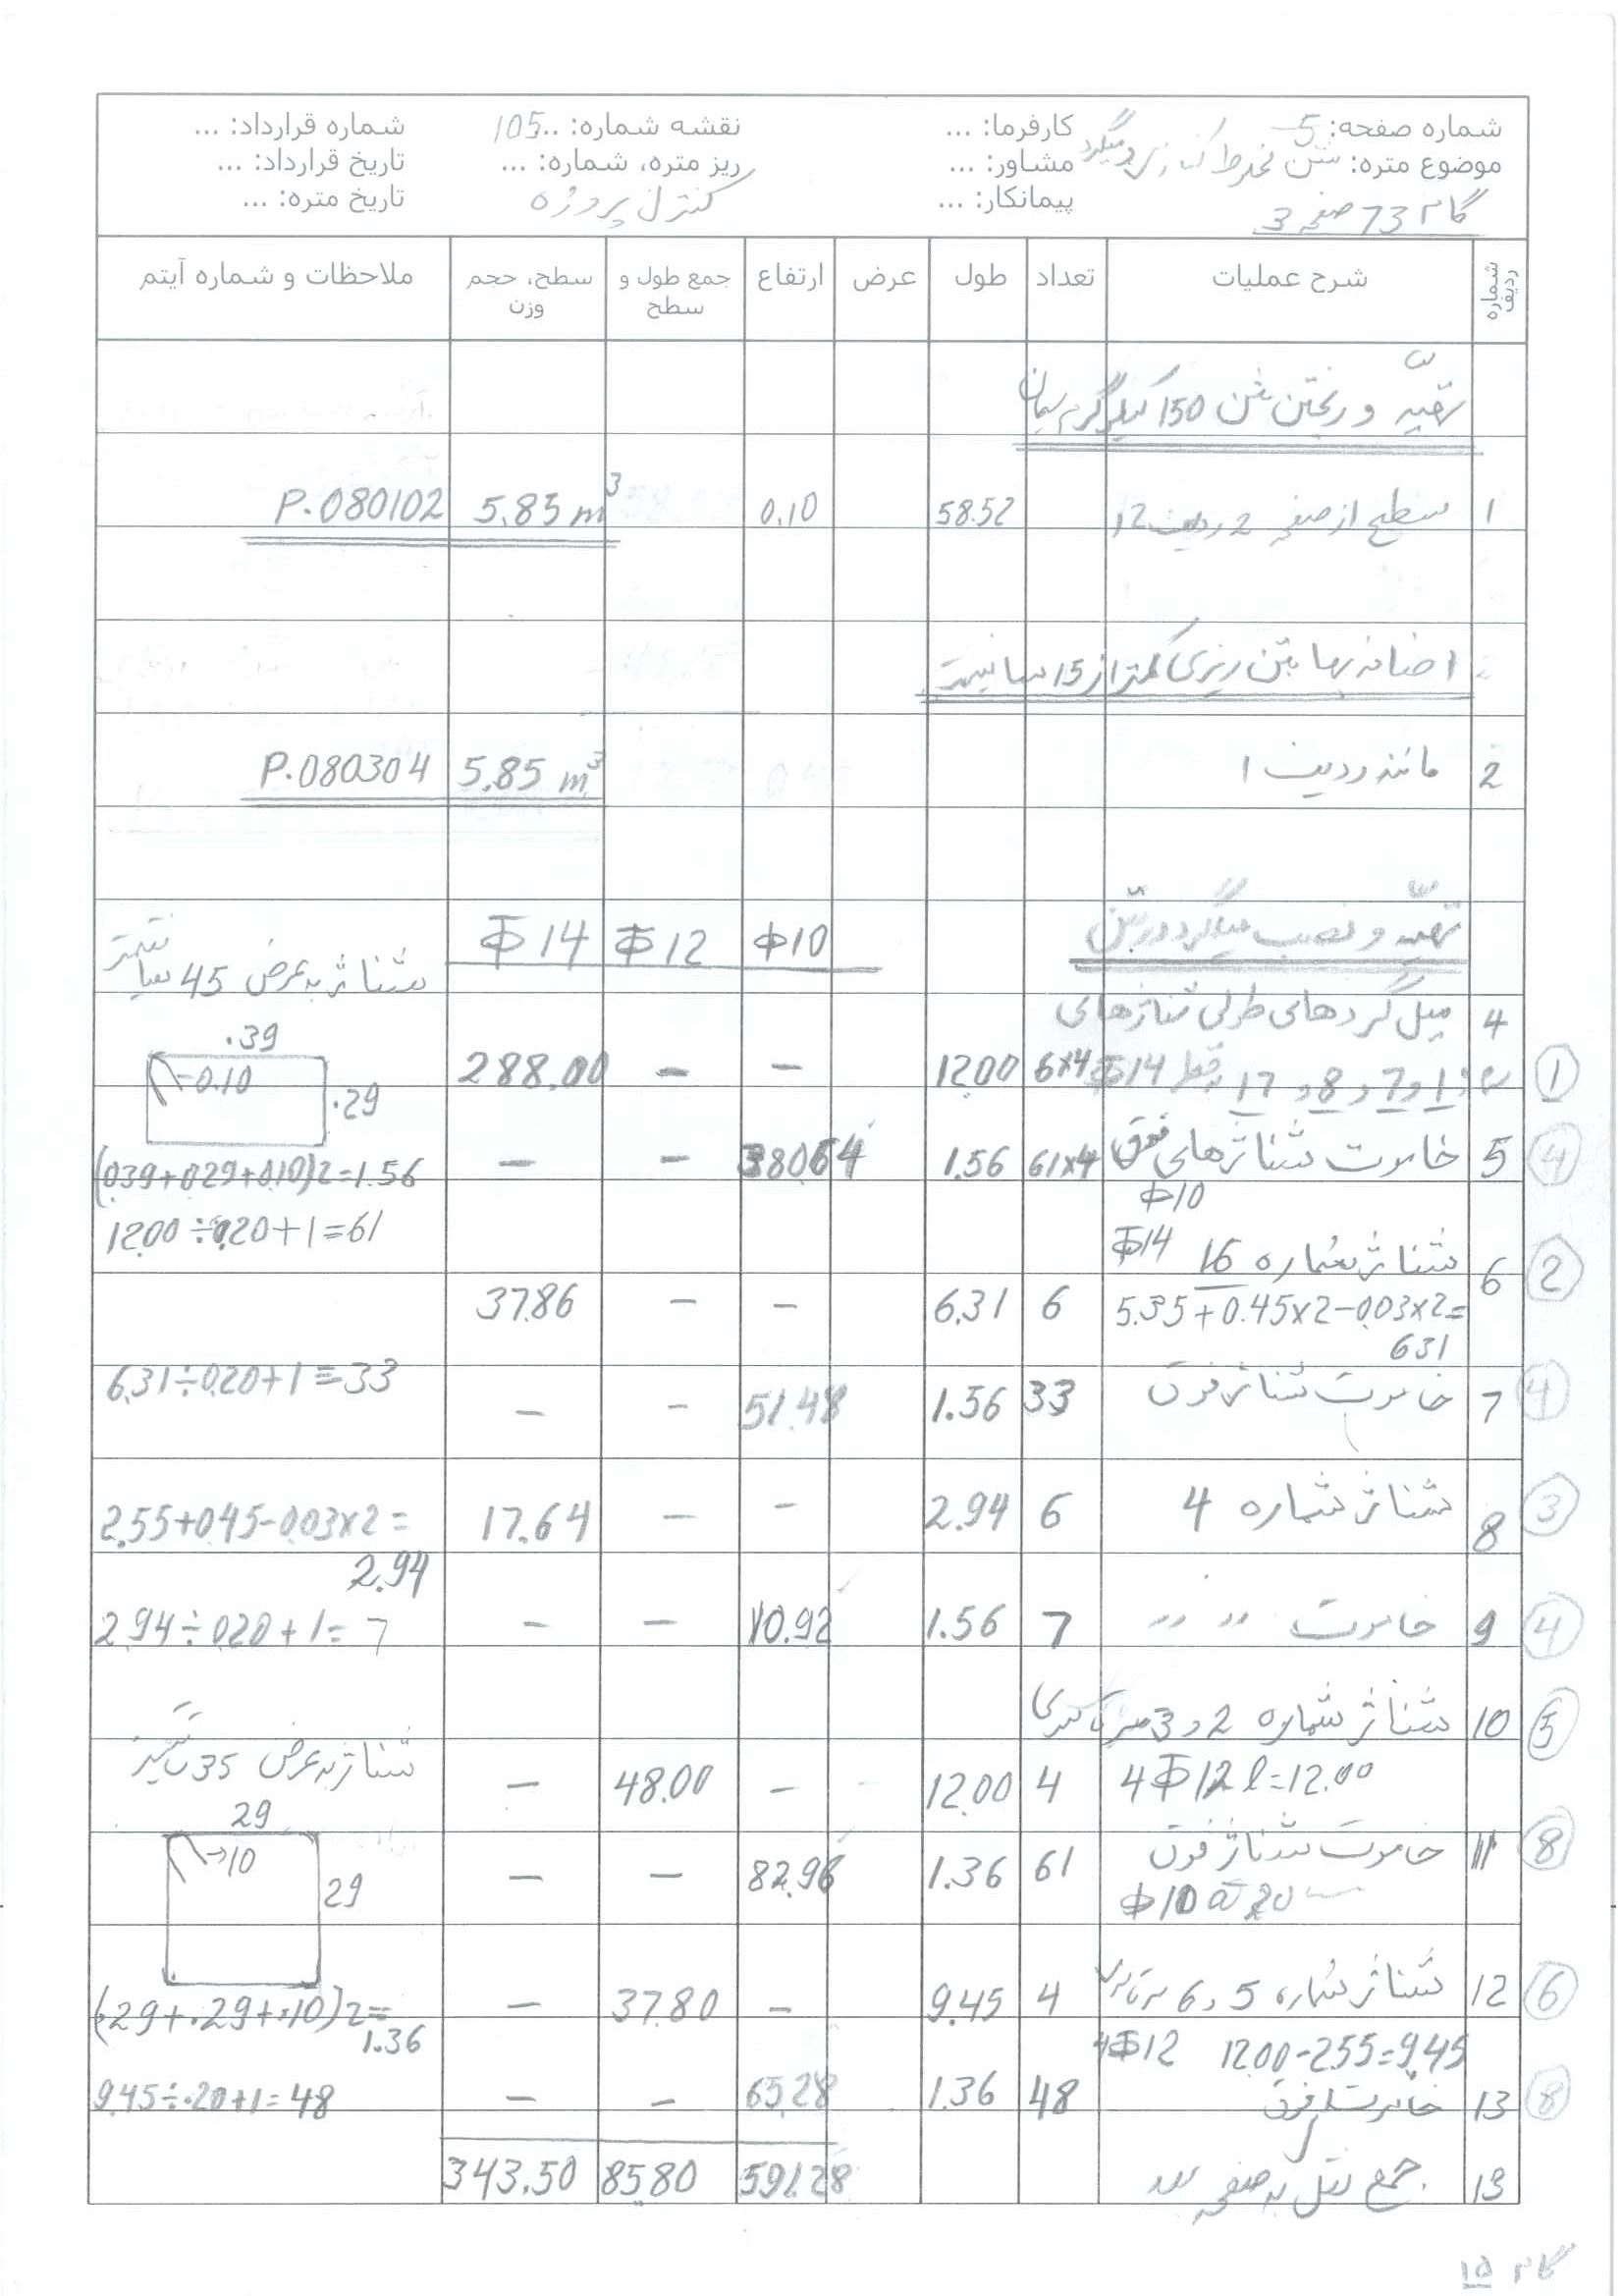 شماره صفحه: 5
موضوع متره: بتن مخلوط زیر و میلگرد
گام 73 صفحه 3
کارفرما: ...
مشاور: ...
پیمانکار: ...
نقشه شماره: ...105
ریز متره، شماره: ...
کنترل پروژه
شماره قرارداد: ...
تاریخ قرارداد: ...
تاریخ متره: ...
شماره ردیف شرح عملیات تعداد طول عرض ارتفاع جمع طول و سطح سطح، حجم وزن ملاحظات و شماره آیتم
تهیه و ریختن بتن 150 کیلوگرم سیمان
1 سطح از صفحه 2 ردیف 12 58.52 0.10 5.85 m³ P.080102
اضافه بها بتن ریزی کمتر از 15 سانتیمتر
2 مانند ردیف 1 5.85 m³ P.080304
تهیه و نصب میلگرد در بتن Φ10 Φ12 Φ14 شناژ به عرض 45 سانتیمتر
4 میل گردهای طولی شناژهای
1 و 7 و 8 و 17 بقطر Φ14 6×4 12.00 — — 288.00
①
.39
0.10
.29
5 خاموت شناژهای فوق 61×4 1.56 380.64 — — (0.39+0.29+0.10)2=1.56
④
Φ10
12.00÷0.20+1=61
6 شناژ شماره 16 Φ14
②
5.35+0.45×2-0.03×2= 6 6.31 — — 37.86
6.31
7 خاموت شناژ فوق 33 1.56 51.48 — — 6.31÷0.20+1=33
④
8 شناژ شماره 4 6 2.94 — — 17.64 2.55+0.45-0.03×2=
2.94
③
9 خاموت 〃 〃 7 1.56 10.92 — — 2.94÷0.20+1=7
④
10 شناژ شماره 2 و 3 سرتاسری
⑤
شناژ به عرض 35
4Φ12 l=12.00 4 12.00 — 48.00 —
29
10
29
11 خاموت شناژ فوق 61 1.36 82.96 — —
⑧
Φ10 @ 20
12 شناژ شماره 5 و 6 4 9.45 — 37.80 — (.29+.29+.10)2=
1.36
⑥
4Φ12 12.00-2.55=9.45
13 خاموت فوق 48 1.36 65.28 — — 9.45÷.20+1=48
⑧
13 جمع نقل به صفحه بعد 591.28 85.80 343.50
گام 15